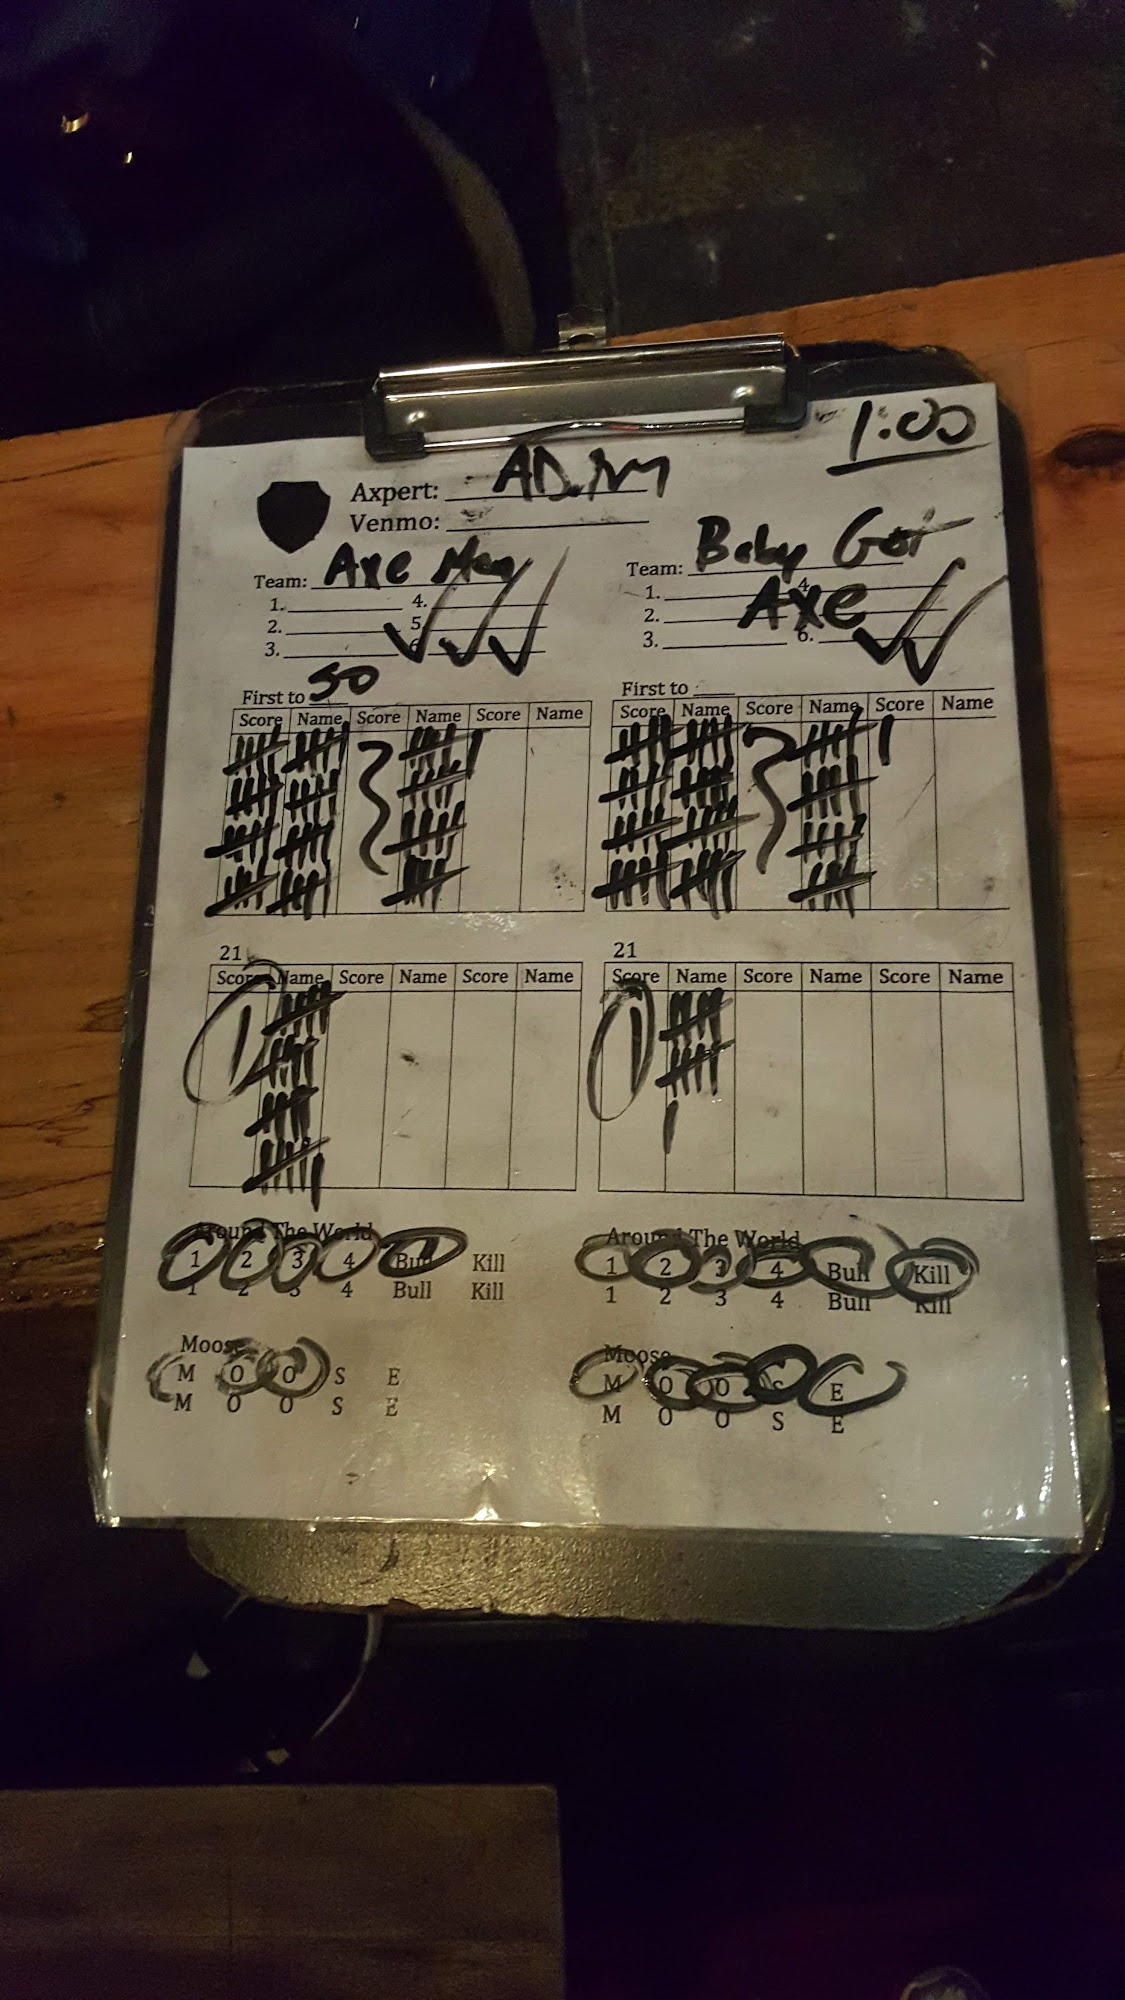 1:00
Axpert: ADAM
Venmo:
Team: Axe Men
1. 4.
2. 5.
3.
Team: Baby Got
Axe
1. 4.
2.
3. 6.
First to 50
Score Name Score Name Score Name
First to
Score Name Score Name Score Name
21
Score Name Score Name Score Name
1
21
Score Name Score Name Score Name
1
Around The World
1 2 3 4 Bull Kill
1 2 3 4 Bull Kill
Around The World
1 2 3 4 Bull Kill
1 2 3 4 Bull Kill
Moose
M O O S E
M O O S E
Moose
M O O S E
M O O S E